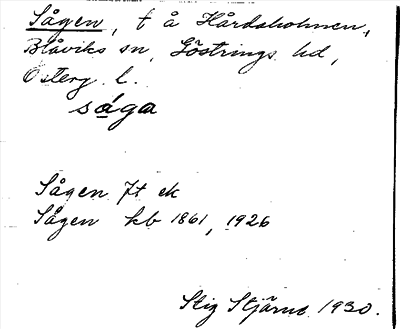 Sågen, t å Hårdaholmen,
Blåviks sn, Göstrings hd,
Österg. l.
såga
Sågen Jt ek
Sågen kb 1861, 1926
Stig Stjärne 1930.